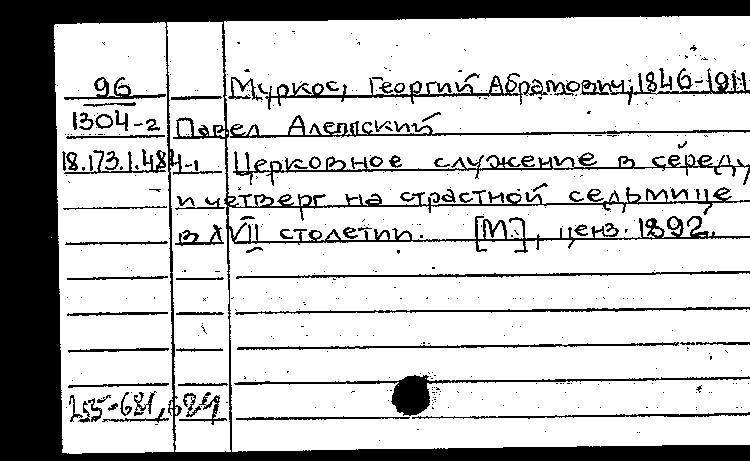 96 Муркос, Георгий Абрамович, 1846-1911
1304-2 Павел Алеппский
18.173.1.484-1 Церковное служение в среду
и четверг на страстной седьмице
в XVII столетии. [М.], ценз. 1892.
255-681,684